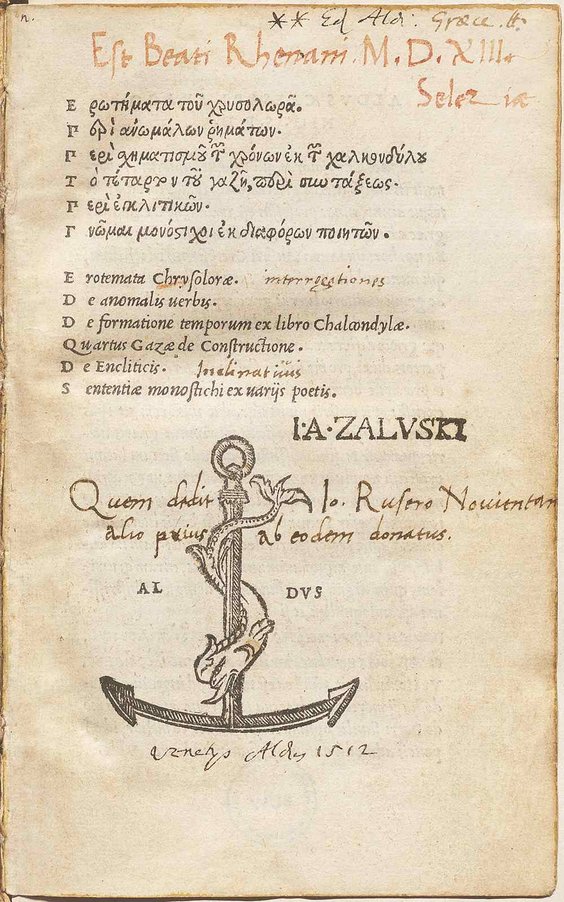 n.
** Ed Aldi. Græce
Est Beati Rhenani. M.D.XIII.
Selez iæ
Ερωτήματα τοῦ χρυσολωρᾶ.
Περὶ ἀνωμάλων ῥημάτων.
Περὶ χηματισμοῦ τῶν χρόνων ἐκ τῶν χαλκονδύλου
Τὸ τέταρτον τοῦ γαζῆ, περὶ συντάξεως.
Περὶ ἐγκλιτικῶν.
Γνῶμαι μονόστιχοι ἐκ διαφόρων ποιητῶν.
Erotemata Chrysoloræ. interrogationes
De anomalis uerbis.
De formatione temporum ex libro Chalcondylæ.
Quartus Gazæ de Constructione.
De Encliticis. Inclinatiuis
Sententiæ monostichi ex uarijs poetis.
I·A·ZALVSKI
Quem dedit Io. Rusero Nouientan
alio prius ab eodem donatus.
AL DVS
Venetijs Aldus 1512